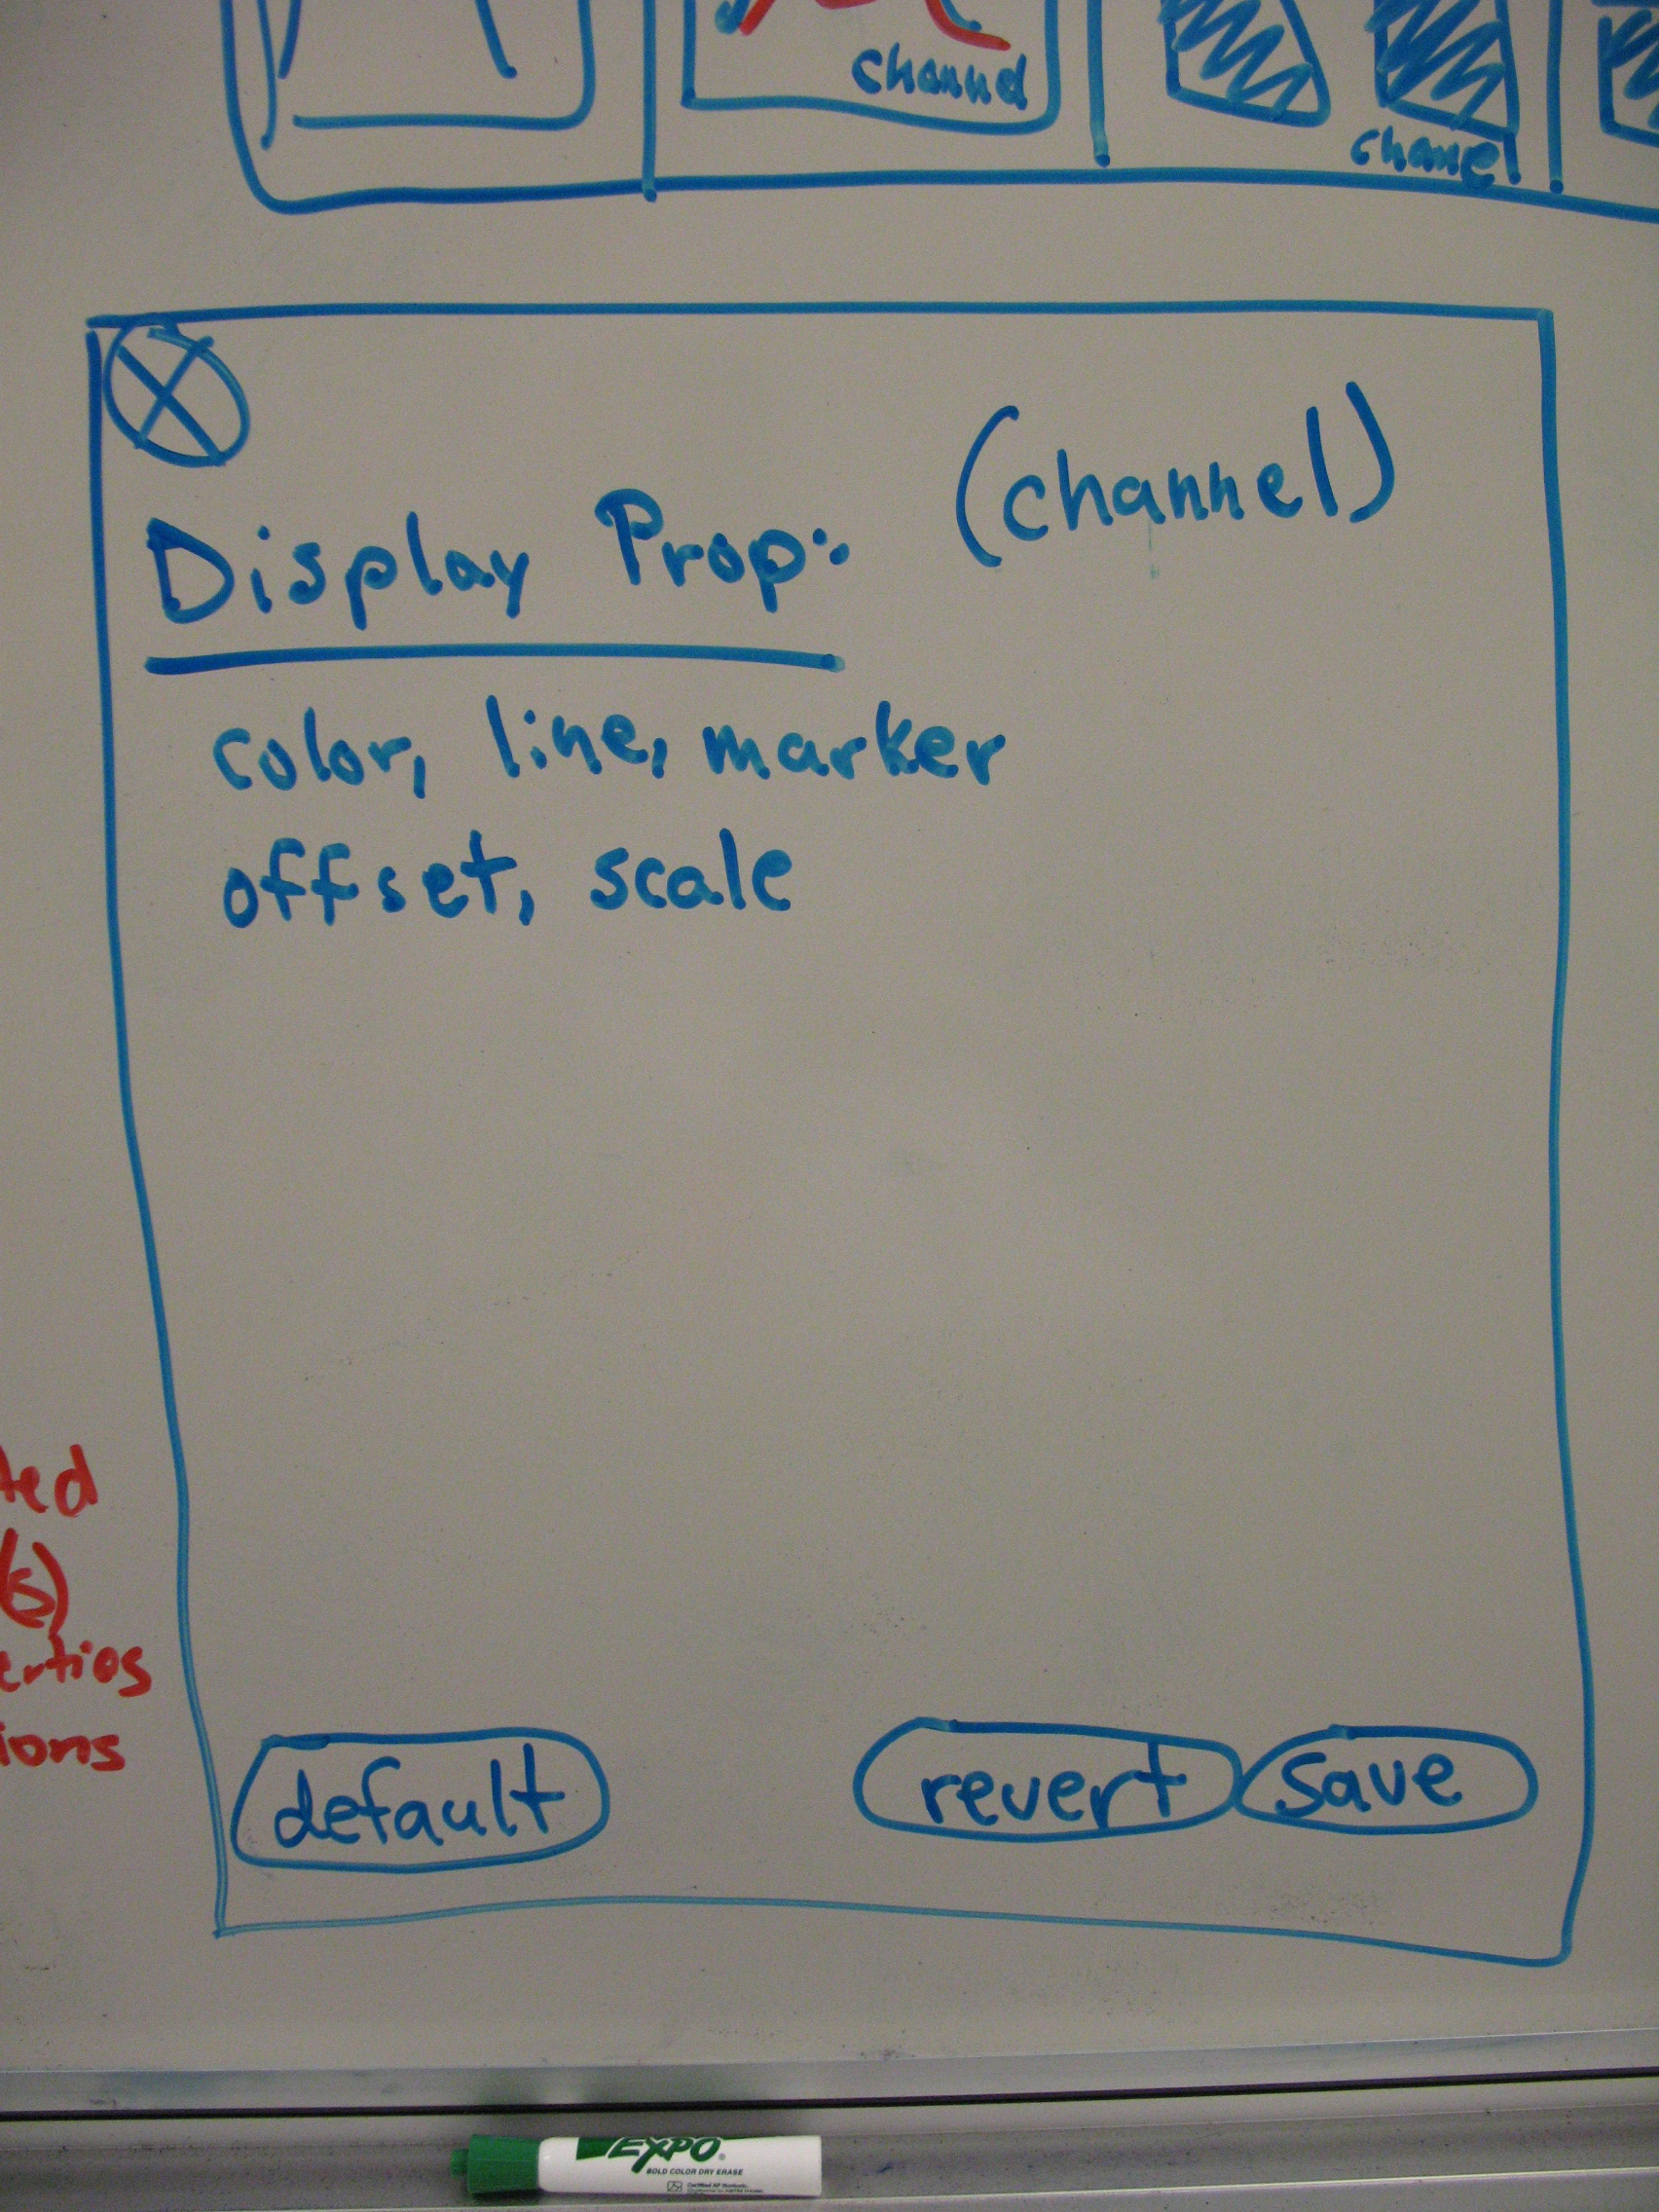 channel
channel
(channel)
Display Prop:
color, line, marker
offset, scale
ted
(s)
erties
ions
default
revert
save
EXPO
BOLD COLOR DRY ERASE